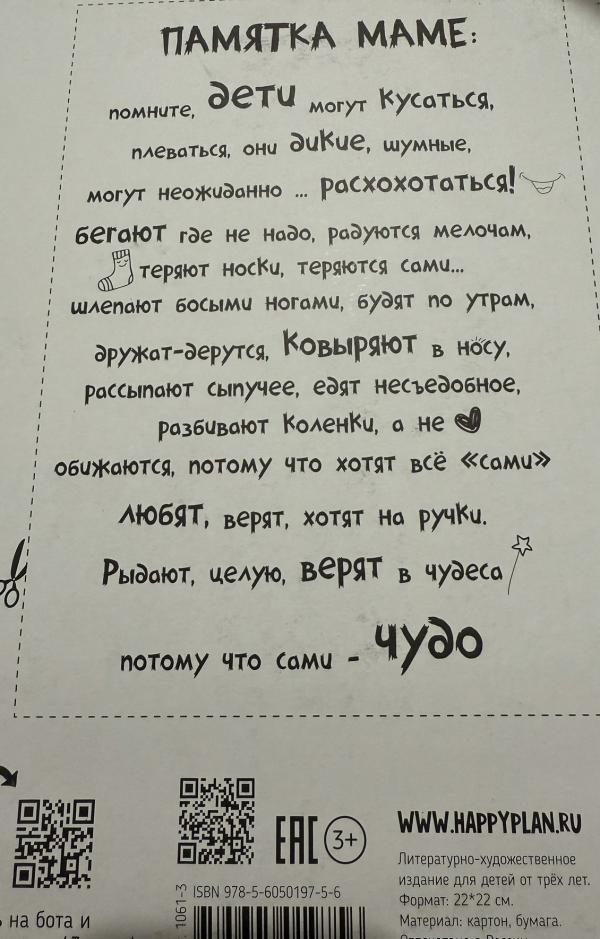 ПАМЯТКА МАМЕ:
помните, дети могут кусаться,
плеваться, они дикие, шумные,
могут неожиданно ... расхохотаться!
бегают где не надо, радуются мелочам,
теряют носки, теряются сами...
шлепают босыми ногами, будят по утрам,
дружат-дерутся, ковыряют в носу,
рассыпают сыпучее, едят несъедобное,
разбивают коленки, а не
обижаются, потому что хотят всё «сами»
любят, верят, хотят на ручки.
Рыдают, целую, верят в чудеса
потому что сами - чудо
EAC 3+
WWW.HAPPYPLAN.RU
Литературно-художественное
издание для детей от трёх лет.
Формат: 22*22 см.
Материал: картон, бумага.
ISBN 978-5-6050197-5-6
1061-3
на бота и